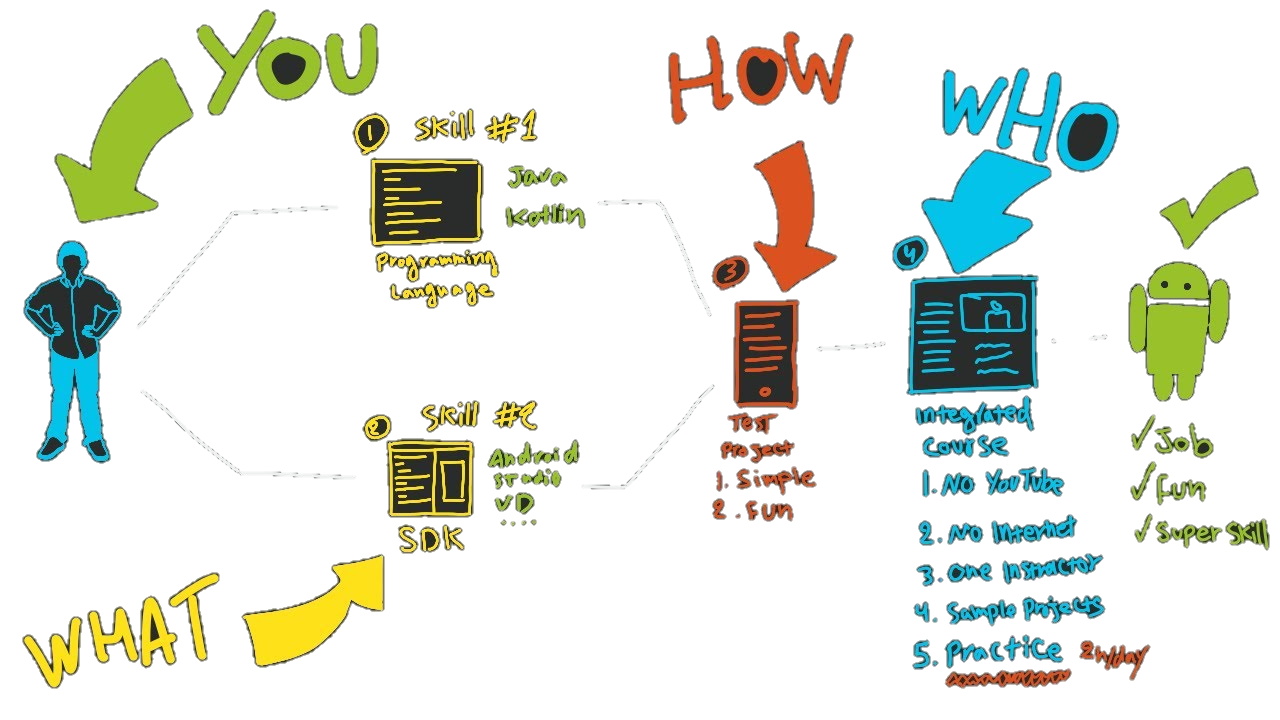 YOU
HOW
WHO
WHAT
1
Skill #1
Java
Kotlin
Programming
Language
2
Skill #2
Android
Studio
VD
....
SDK
3
Test
Project
1. Simple
2. Fun
4
Integrated
Course
1. No YouTube
2. No Internet
3. One Instructor
4. Sample Projects
5. Practice 2h/day
✓ Job
✓ Fun
✓ Super Skill